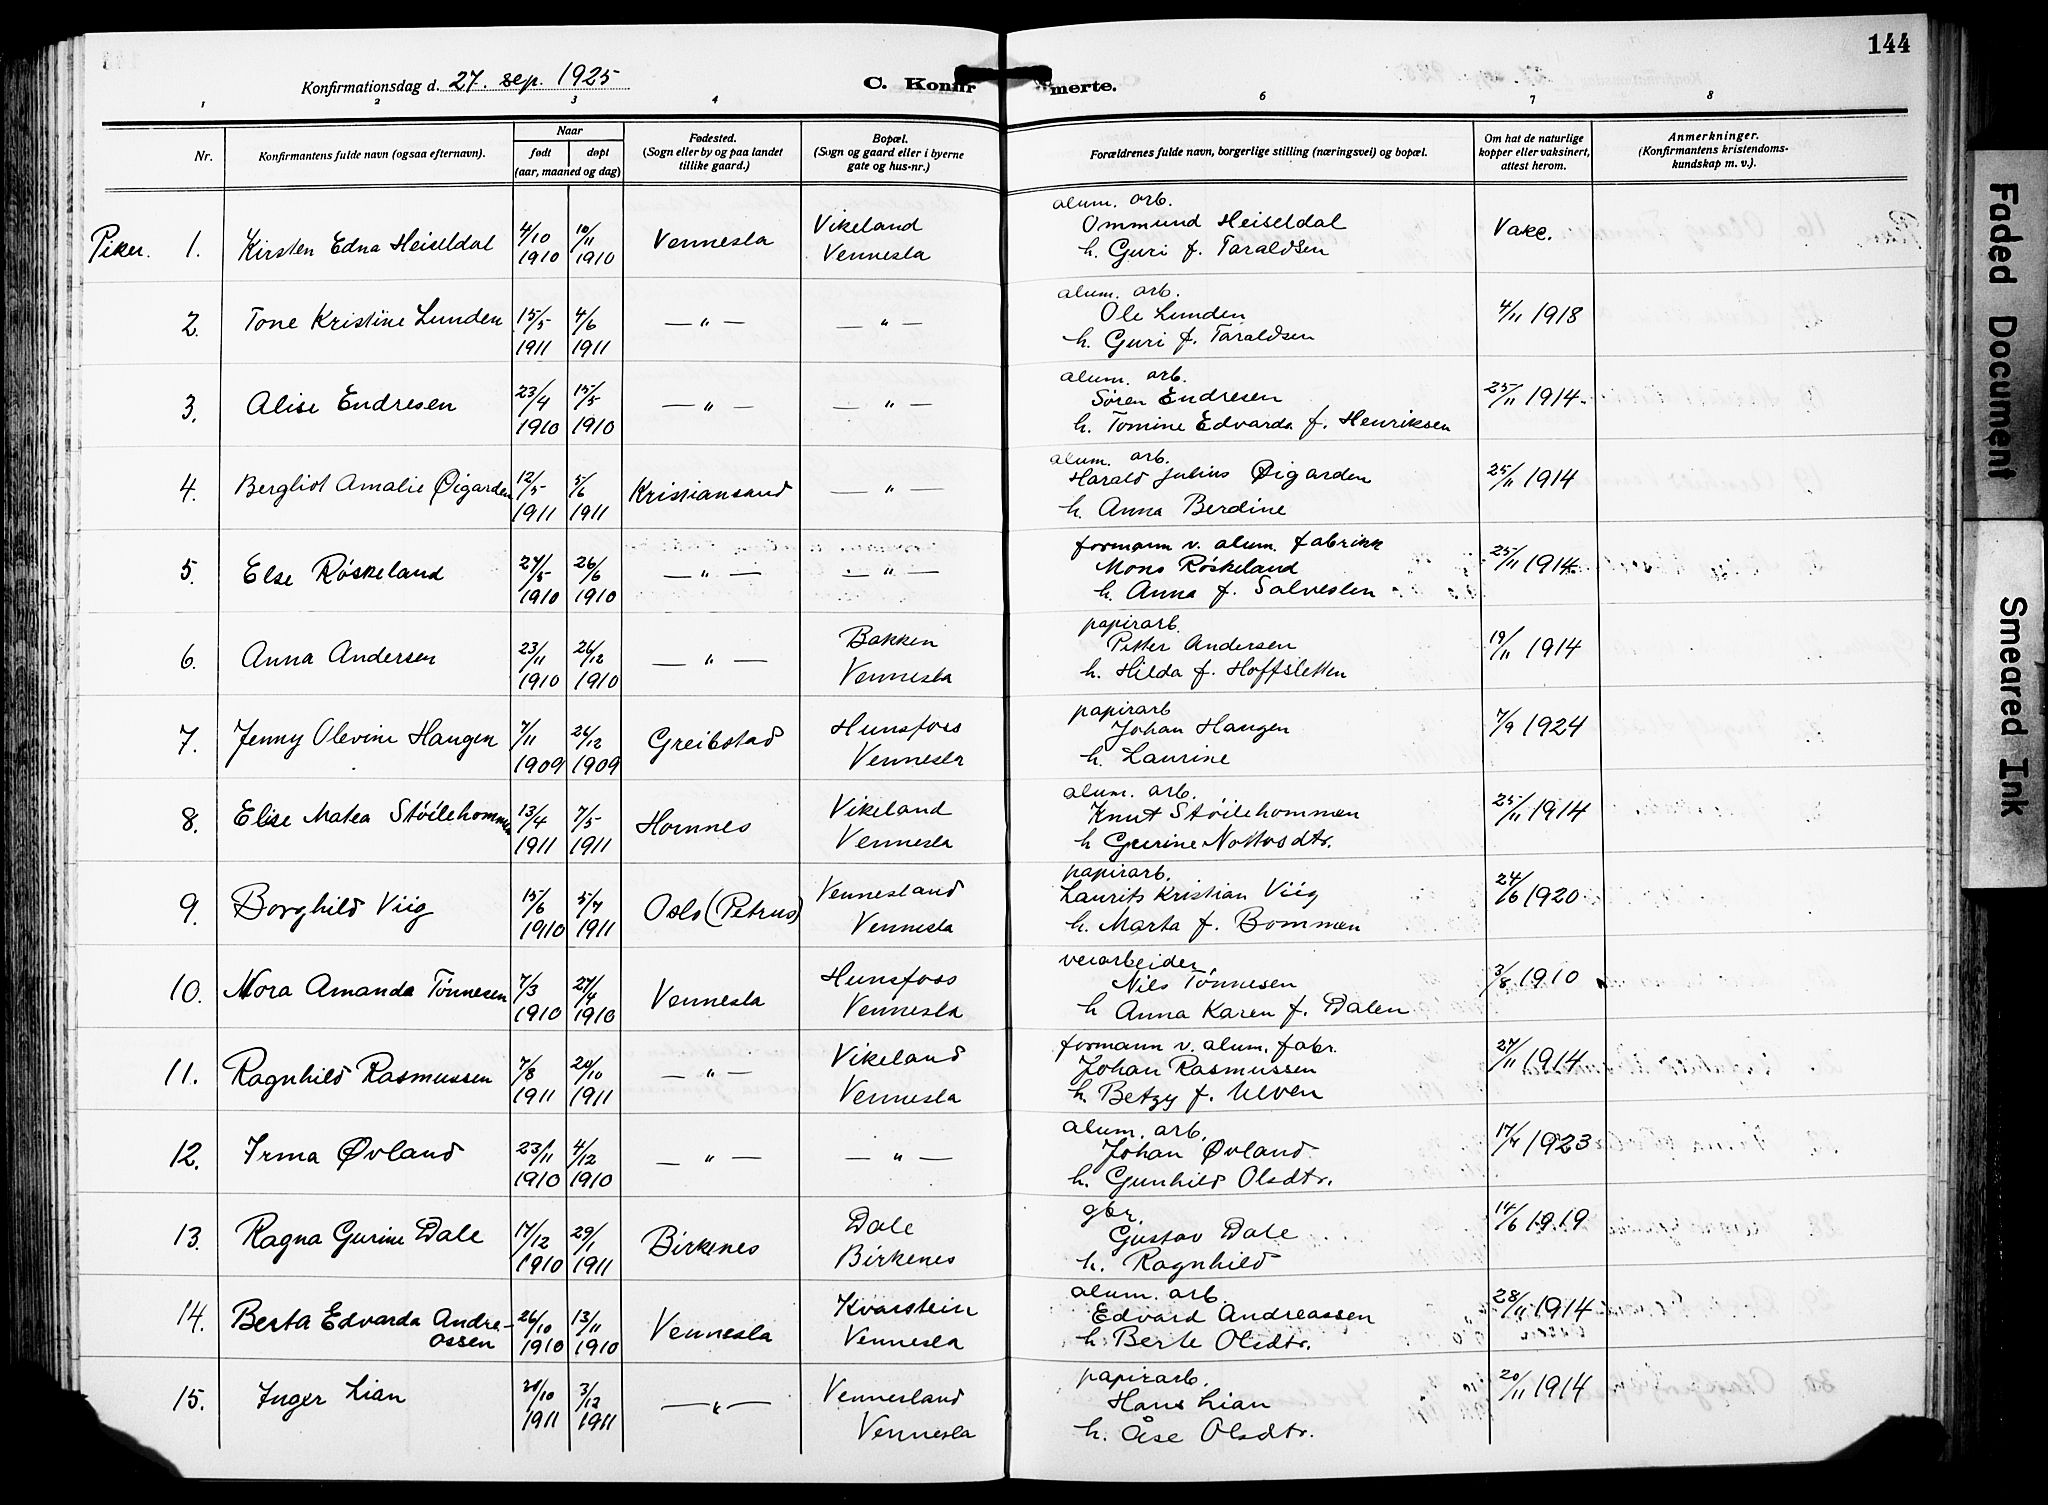 144
Konfirmationsdag d. 27. sep. 1925
C. Konfir merte.
1 2 3 4 5 6 7 8
Nr. Konfirmantens fulde navn (ogsaa efternavn). Naar født døpt (aar, maaned og dag) Fødested. (Sogn eller by og paa landet tillike gaard.) Bopæl. (Sogn og gaard eller i byerne gate og hus-nr.) Forældrenes fulde navn, borgerlige stilling (næringsvei) og bopæl. Om hat de naturlige kopper eller vaksinert, attest herom. Anmerkninger. (Konfirmantens kristendoms- kundskap m. v.).
alum. arb.
Piker. 1. Kirsten Edna Heiseldal 4/10 10/11 Vennesla Vikeland Ommund Heiseldal Vakc.
1910 1910 Vennesla h. Guri f. Taraldsen
alum. arb.
2. Tone Kristine Lunden 15/5 4/6 — " — — " — Ole Lunden 4/11 1918
1911 1911 h. Guri f. Taraldsen
alum. arb.
3. Alise Endresen 23/4 15/5 — " — — " — Søren Endresen 25/11 1914.
1910 1910 h. Tomine Edvarda f. Henriksen
alum. arb.
4. Bergliot Amalie Øigarden 12/5 5/6 Kristiansand — " — Harald Julius Øigarden 25/11 1914
1911 1911 h. Anna Berdine
formann v. alum. fabrikk
5. Else Røskeland 27/5 26/6 — " — — " — Mons Røskeland 25/11 1914.
1910 1910 h. Anna f. Salvesen
papirarb.
6. Anna Andersen 23/11 26/12 — " — Bakken Petter Andersen 19/11 1914
1910 1910 Vennesla h. Hilda f. Hoffsletten
papirarb
7. Jenny Olevine Haugen 7/11 26/12 Greibstad Hunsfoss Johan Haugen 7/9 1924
1909 1909 Vennesla h. Laurine
alum. arb.
8. Elise Matea Støilehommen 13/4 7/5 Hornnes Vikeland Knut Støilehommen 25/11 1914
1911 1911 Vennesla h Gurine Nottosdtr.
papirarb.
9. Borghild Viig 15/6 5/7 Oslo (Petrus) Vennesland Laurits Kristian Viig 24/6 1920
1910 1911 Vennesla h. Marta f. Bommen
verarbeider,
10. Nora Amanda Tønnesen 7/3 27/4 Vennesla Hunsfoss Nils Tønnesen 3/8 1910
1910 1910 Vennesla h Anna Karen f. Dalen
formann v. alum. fabr.
11. Ragnhild Rasmussen 7/8 20/10 — " — Vikeland Johan Rasmussen 27/11 1914
1911 1911 Vennesla h. Betzy f. Ulven
alum. arb.
12. Irma Øvland 23/11 4/12 — " — — " — Johan Øvland 17/7 1923
1910 1910 h. Gunhild Olsdtr.
gbr.
13. Ragna Gurine Dale 17/12 29/1 Birkenes Dale Gustav Dale 14/6 1919
1910 1911 Birkenes h. Ragnhild
alum. arb.
14. Berta Edvarda Andre- 26/10 13/11 Vennesla Kvarstein Edvard Andreassen 28/11 1914
assen 1910 1910 Vennesla h Berte Olsdtr.
papirarb.
15. Inger Lian 28/10 3/12 — " — Vennesland Hans Lian 20/11 1914
1911 1911 Vennesla h. Åse Olsdtr.
Faded Document
Smeared Ink